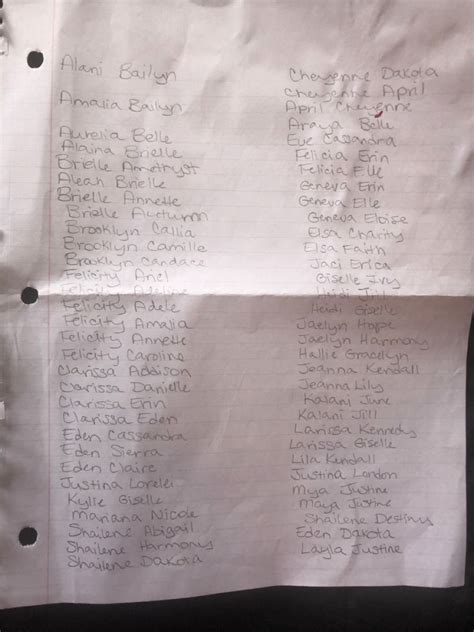 Alani Bailyn
Amalia Bailyn
Aurelia Belle
Alaina Brielle
Brielle Ametryst
Aleah Brielle
Brielle Annette
Brielle Autumn
Brooklyn Callia
Brooklyn Camille
Brooklyn Candace
Felicity Ariel
Felicity Adeline
Felicity Adele
Felicity Amalia
Felicity Annette
Felicity Caroline
Clarissa Addison
Clarissa Danielle
Clarissa Erin
Clarissa Eden
Eden Cassandra
Eden Sierra
Eden Claire
Justina Lorelei
Kylie Giselle
Mariana Nicole
Shailene Abigail
Shailene Harmony
Shailene Dakota
Cheyenne Dakota
Cheyenne April
April Cheyenne
Araya Belle
Eve Cassandra
Felicia Erin
Felicia Elle
Geneva Erin
Geneva Elle
Geneva Eloise
Elsa Charity
Elsa Faith
Jaci Erica
Giselle Ivy
Heidi Jill
Heidi Giselle
Jaelyn Hope
Jaelyn Harmony
Hallie Gracelyn
Jeanna Kendall
Jeanna Lily
Kalani June
Kalani Jill
Larissa Kennedy
Larissa Giselle
Lila Kendall
Justina London
Mya Justine
Maya Justine
Shailene Destiny
Eden Dakota
Layla Justine